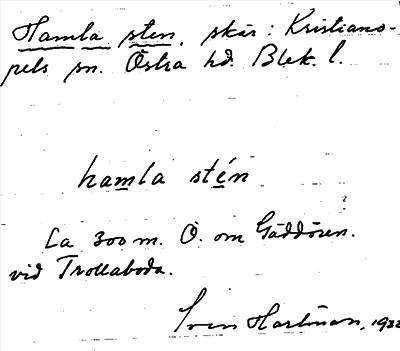 Hamla sten, skär: Kristiano-
pels sn. Östra hd. Blek. l.
hamla stén
Ca 300 m. Ö. om Gäddören.
vid Trollaboda.
Sven Hartman, 1932